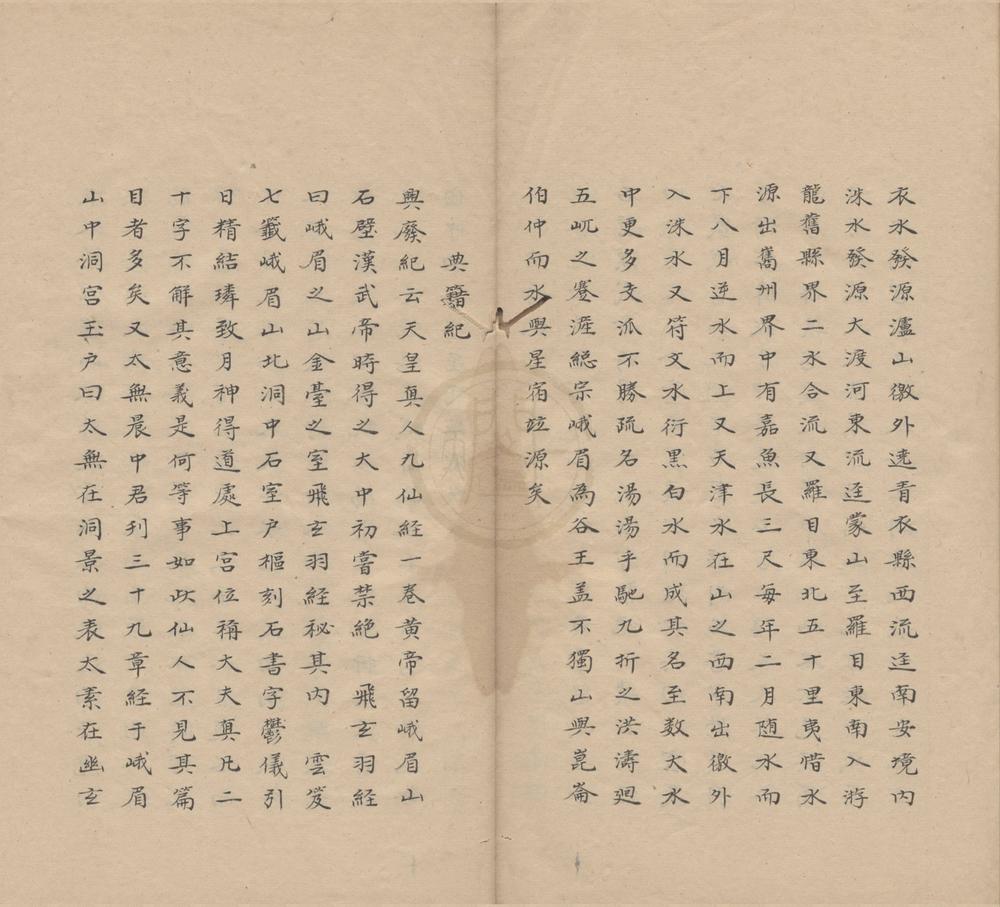 衣水發源瀘山徼外遶青衣縣西流逕南安境內
洙水發源大渡河東流逕蒙山至羅目東南入游
龍舊縣界二水合流又羅目東北五十里夷惜水
源出舊州界中有嘉魚長三尺每年二月随水而
下八月逆水而上又天津水在山之西南出徼外
入洙水又符文水衍黑白水而成其名至数大水
中更多支派不勝疏名湯湯乎馳九折之洪濤廻
五屼之蹇涯縂宗峨眉為谷王盖不獨山與崑崙
伯仲而水與星宿竝源矣
典籍紀
興廢紀云天皇真人九仙経一巻黄帝留峨眉山
石壁漢武帝時得之大中初嘗禁絶　飛玄羽経
曰峨眉之山金臺之室飛玄羽經秘其內　雲笈
七籤峨眉山北洞中石室户樞刻石書字鬱儀引
日精結璘致月神得道處上宫位稱大夫真凡二
十字不解其意義是何等事如此仙人不見其篇
目者多矣又太無晨中君刋三十九章経于峨眉
山中洞宫玉户曰太無在洞景之表太素在幽玄